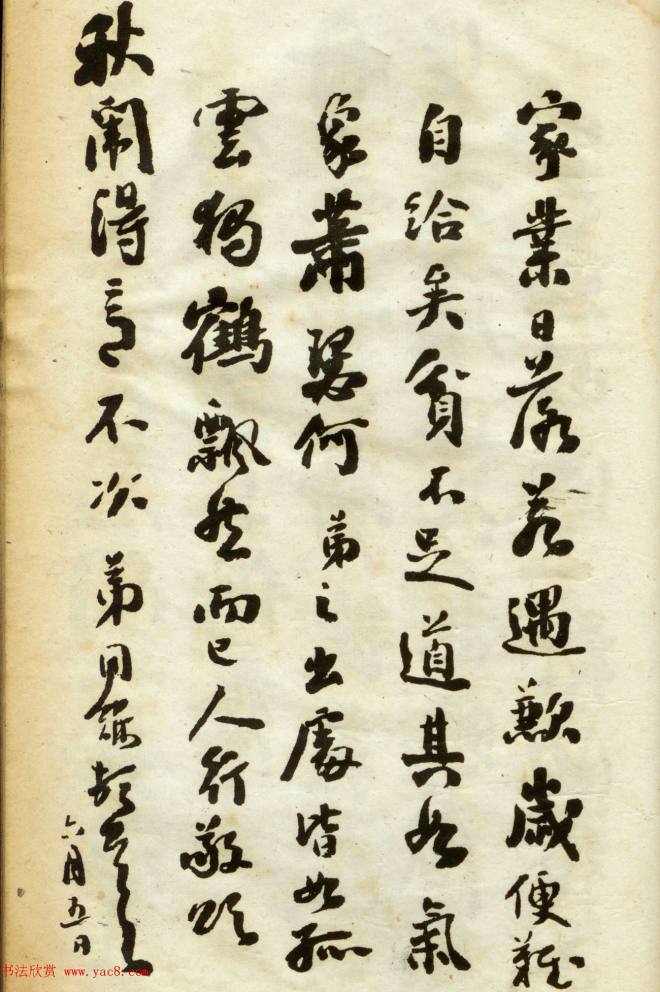 家業日落若遇歉歲便難
自給矣貧不足道其如氣
象蕭瑟何弟之出處皆如孤
雲獨鶴飄然而已人行敬頌
秋闈得意不次弟同龢頓首
六月五日
书法欣赏 www.yac8.com